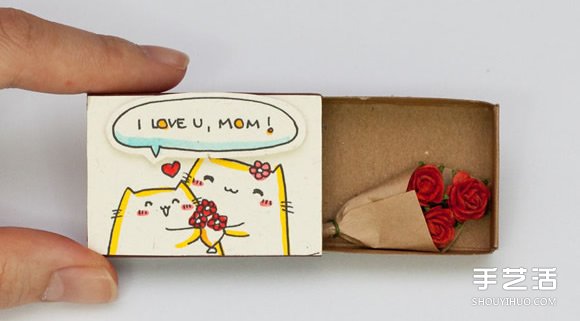 I LOVE U, MOM!
手艺活
SHOUYIHUO.COM